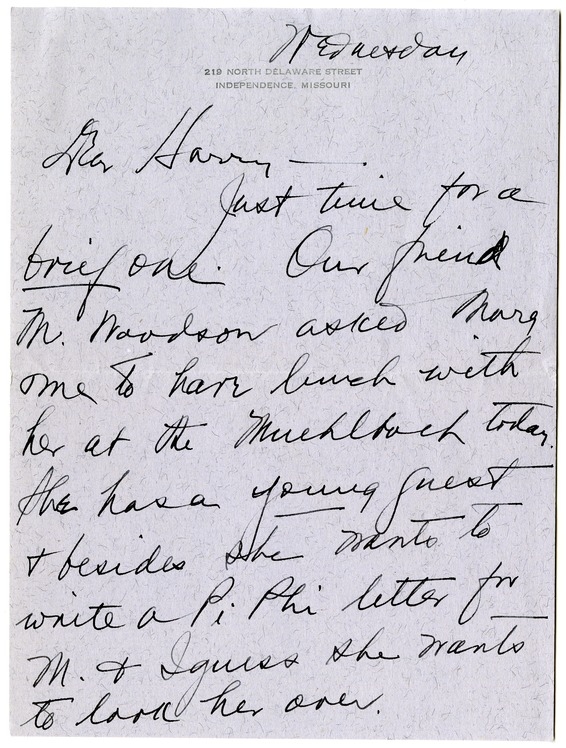 Wednesday
219 NORTH DELAWARE STREET
INDEPENDENCE, MISSOURI
Dear Harry —.
Just time for a
brief one. Our friend
M. Woodson asked Marg
& me to have lunch with
her at the Muehlbach today.
She has a young guest
& besides she wants to
write a Pi Phi letter for
M. & I guess she wants
to look her over.